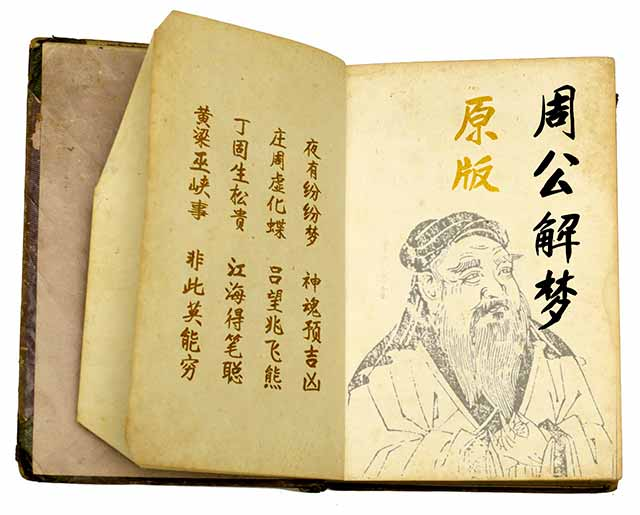 周公解梦
原版
夜有纷纷梦 神魂预吉凶
庄周虚化蝶 吕望兆飞熊
丁固生松貴 江海得笔聪
黄梁巫峡事 非此英能穷